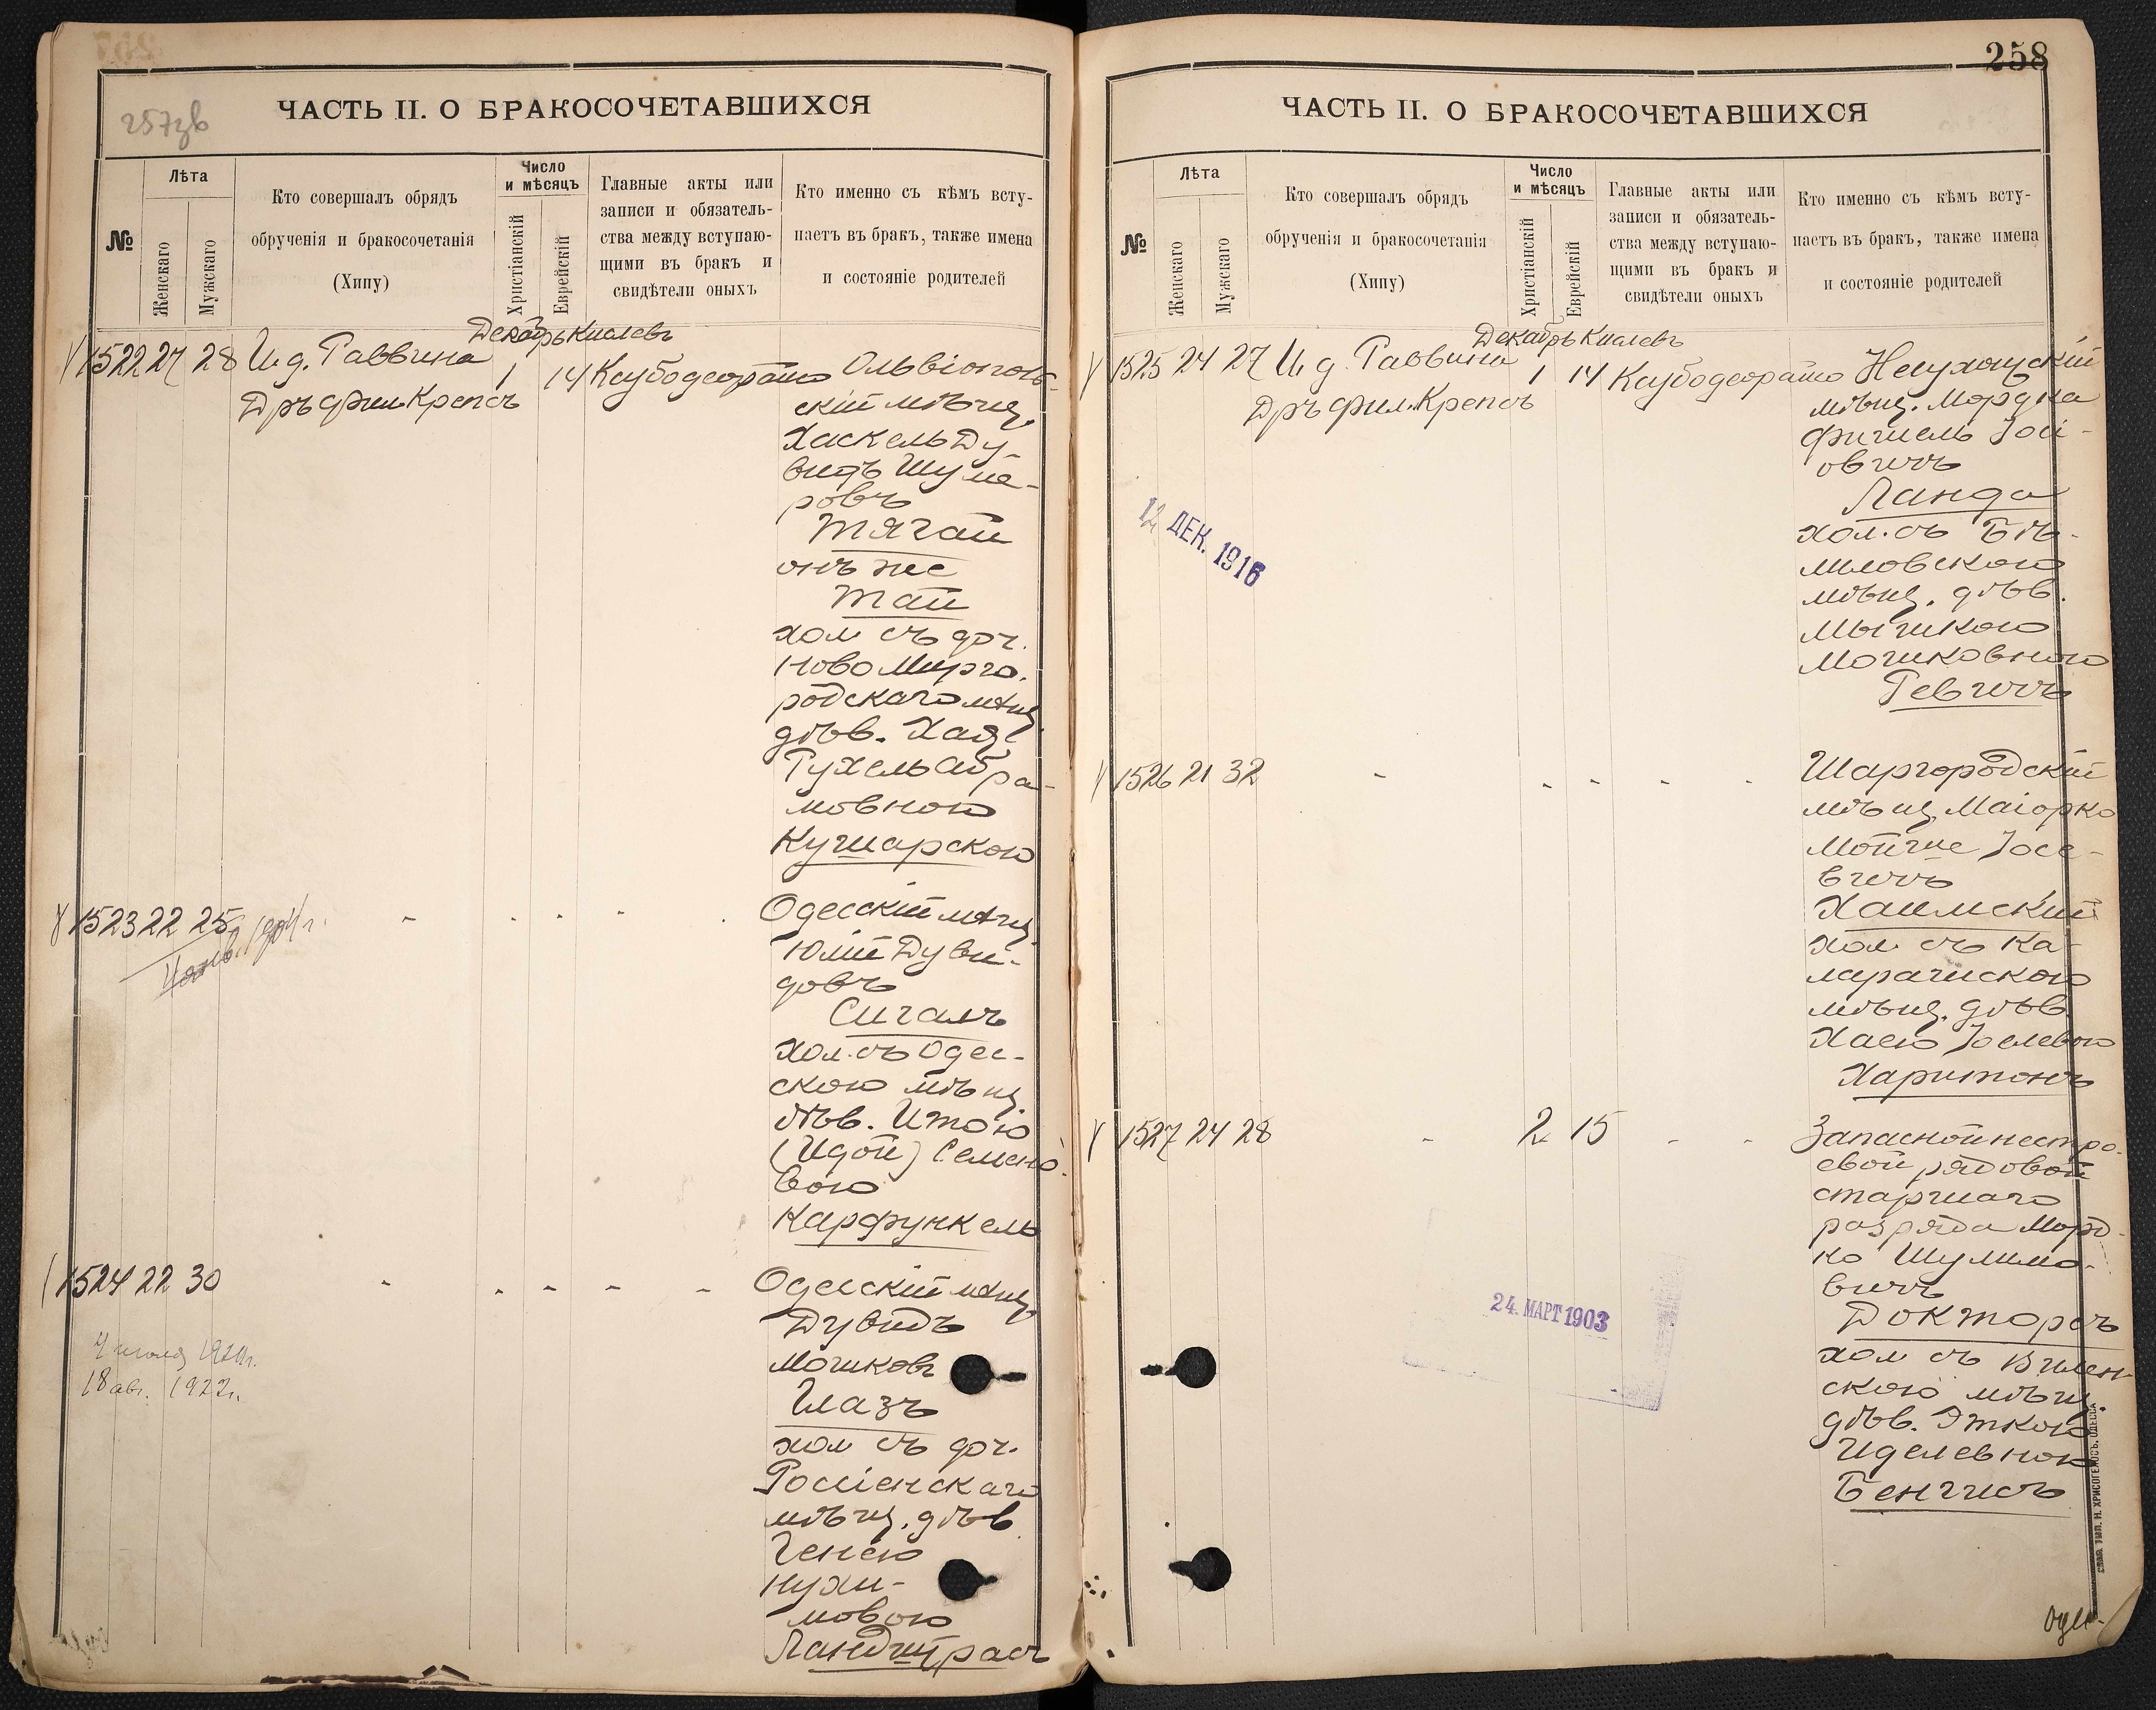 257зв
ЧАСТЬ II. О БРАКОСОЧЕТАВШИХСЯ
№
Лѣта
Женскаго
Мужскаго
Кто совершалъ обрядъ
обрученія и бракосочетанія
(Хипу)
Число
и мѣсяцъ
Христіанскій
Еврейскій
Главные акты или
записи и обязатель-
ства между вступаю-
щими въ бракъ и
свидѣтели оныхъ
Кто именно съ кѣмъ всту-
паетъ въ бракъ, также имена
и состояніе родителей
Декабрь Кислевъ
1522 27 28 И. д. Раввина 1 14 Ксубодеорайто Ольвіополь-
Дръ Фил. Крепсъ
скій мѣщ.
Хаскель Ду-
видъ Шуле-
ровъ
Тягай
онъ же
Тай
хол съ доч.
Ново Мирго-
родскаго мѣщ.
дѣв. Хае
Рухель Абра-
мовною
Кушарскою
1523 22 25 - - - - Одесскій мѣщ.
Юлій Дуви-
довъ
Сигалъ
Хол. съ Одес-
скою мѣщ.
дѣв. Итою
(Идой) Семено-
вою
Карфункель
1524 22 30 - - - - - Одесскій мѣщ.
Дувидъ
Мошковъ
Глазъ
хол съ доч.
Россіенскаго
мѣщ. дѣв
Генею
Нухи-
мовою
Ландшрасъ
4 июля 1921г.
18 авг. 1922г.
258
ЧАСТЬ II. О БРАКОСОЧЕТАВШИХСЯ
№
Лѣта
Женскаго
Мужскаго
Кто совершалъ обрядъ
обрученія и бракосочетанія
(Хипу)
Число
и мѣсяцъ
Христіанскій
Еврейскій
Главные акты или
записи и обязатель-
ства между вступаю-
щими въ бракъ и
свидѣтели оныхъ
Кто именно съ кѣмъ всту-
паетъ въ бракъ, также имена
и состояніе родителей
Декабрь Кислевъ
1525 24 27 И. д. Раввина 1 14 Ксубодеорайто Несухоцскій
Дръ Фил. Крепсъ
мѣщ. Мордка
Фишель Іосі-
овичъ
Ланда
хол. съ Бѣ-
ловскою
мѣщ. дѣв.
Мышкою
Мошковною
Ревичъ
12 ДЕК. 1916
1526 21 32 - - - - - Шаргородскій
мѣщ. Маіорко
Мойше Іосе-
вичъ
Хаимскій
хол. съ Ка-
ларашскою
мѣщ. дѣв.
Хаею Іоелевою
Харитонъ
1527 24 28 - 2 15 - - Запасной нестро-
евой рядовой
старшаго
разряда Морд-
ко Шулимо-
вичъ
Докторъ
хол съ Вилен-
скою мѣщ.
дѣв. Эткою
Иделевною
Бенгисъ
24. МАРТ 1903
ТИП. Н. ХРИСОГЕЛОСЪ. ОДЕССА